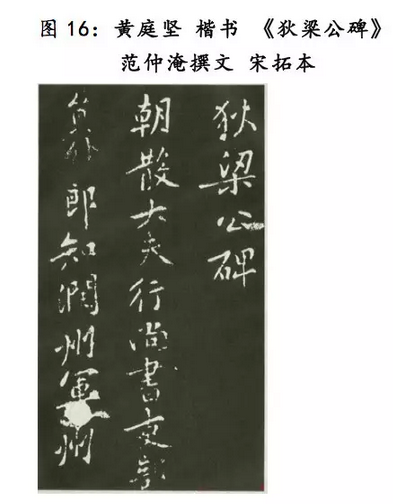 图 16：黄庭坚 楷书 《狄梁公碑》
范仲淹撰文 宋拓本
狄梁公碑
朝散大夫行尚書吏部
員外郎知潤州軍州